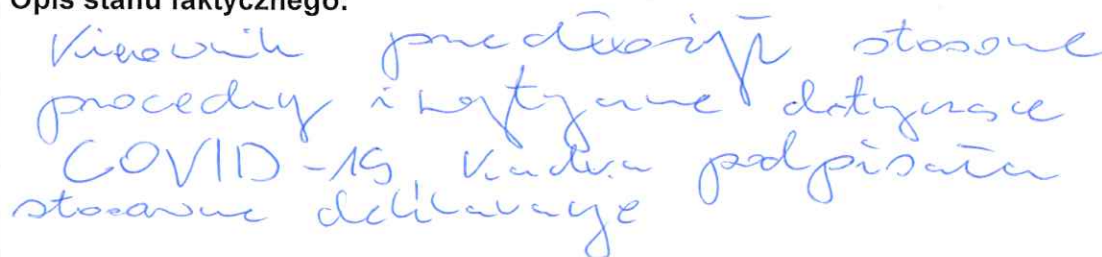 Opis stanu faktycznego:
Kierownik przedłożył stosowne
procedury i wytyczne dotyczące
COVID-19. Kadra podpisała
stosowne deklaracje